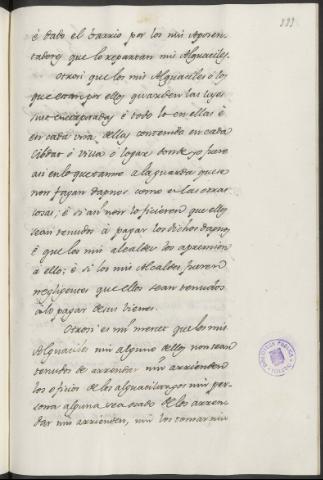 199
é dado el barrio por los mis Aposen-
tadores que lo repartan mis Alguaciles.
Otrosi que los mis Alguaciles ó los
que eran por ellos guarden las leyes
suso encorporadas é todo lo en ellas é
en cada una dellas contenido en cada
Cibdat ó Villa ó logar donde yo fuere
asi en lo que tanne a la guarda que
non fagan dapnos como en las otras
cosas; é si asi non lo ficieren que ellos
sean tenudos á pagar los dichos dapnos,
é que los mis alcaldes los apremien
á ello; é si los mis Alcaldes fueren
negligentes que ellos sean tenudos
á lo pagar de sus bienes.
Otrosi es mi merced que los mis
Alguaciles nin alguno dellos non sean
tenudos de arrendar nin arrienden
los oficios de los alguacilazgos nin per-
sona alguna sea osado de los arren-
dar nin arrienden, nin los tomar nin
BIBLIOTECA PUBLICA
TOLEDO